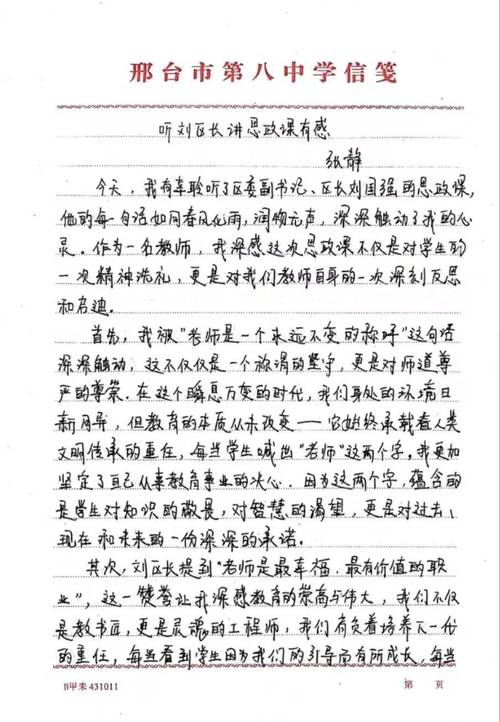 邢台市第八中学信笺
听刘区长讲思政课有感
张静
今天，我有幸聆听了区委副书记、区长刘国强的思政课，
他的每一句话如同春风化雨，润物无声，深深触动了我的心
灵。作为一名教师，我深感这次思政课不仅是对学生的
一次精神洗礼，更是对我们教师自身的一次深刻反思
和启迪.
首先，我被“老师是一个永远不变的称呼”这句话
深深触动，这不仅仅是一个称谓的坚守，更是对师道尊
严的尊崇。在这个瞬息万变的时代，我们身处的环境日
新月异，但教育的本质从未改变——它始终承载着人类
文明传承的重任，每当学生喊出“老师”这两个字，我更加
坚定了自己从事教育事业的决心. 因为这两个字，蕴含的
是学生对知识的敬畏，对智慧的渴望，更是对过去、
现在和未来的一份深深的承诺.
其次，刘区长提到“老师是最幸福，最有价值的职
业”，这一赞誉让我深感教育的崇高与伟大，我们不仅
是教书匠，更是灵魂的工程师，我们肩负着培养下一代
的重任，每当看到学生因为我们的引导而有所成长，每当
B甲来431011
第 页